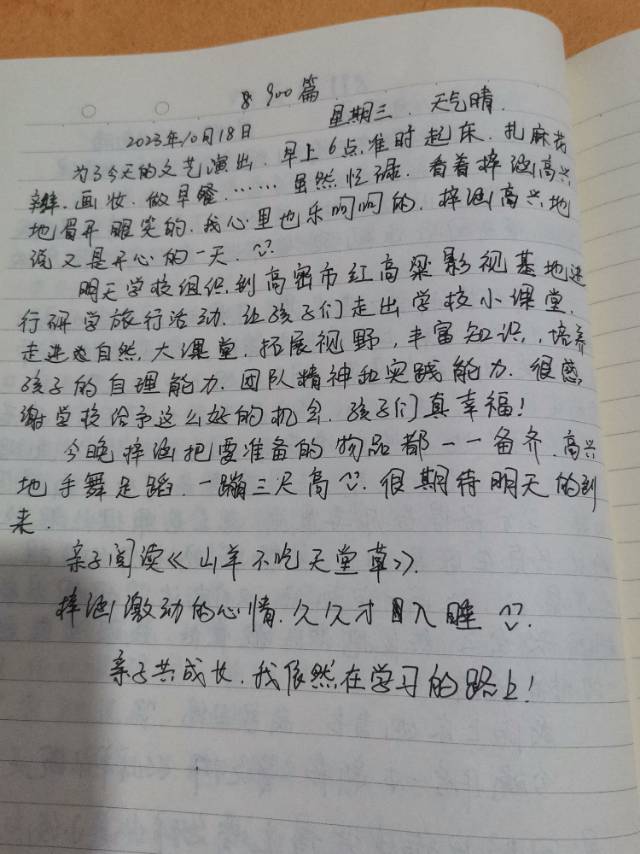 第900篇
2023年10月18日 星期三. 天气晴.
为了今天的文艺演出. 早上6点准时起床. 扎麻花
辫. 画妆. 做早餐…… 虽然忙碌. 看着梓涵高兴
地眉开眼笑的. 我心里也乐呵呵的. 梓涵高兴地
说又是开心的一天.
明天学校组织到高密市红高粱影视基地进
行研学旅行活动. 让孩子们走出学校小课堂.
走进大自然大课堂. 拓展视野, 丰富知识, 培养
孩子的自理能力. 团队精神和实践能力. 很感
谢学校给予这么好的机会. 孩子们真幸福!
今晚梓涵把要准备的物品都一一备齐. 高兴
地手舞足蹈. 一蹦三尺高. 很期待明天的到
来.
亲子阅读《山羊不吃天堂草》.
梓涵激动的心情. 久久才入睡.
亲子共成长. 我依然在学习的路上!